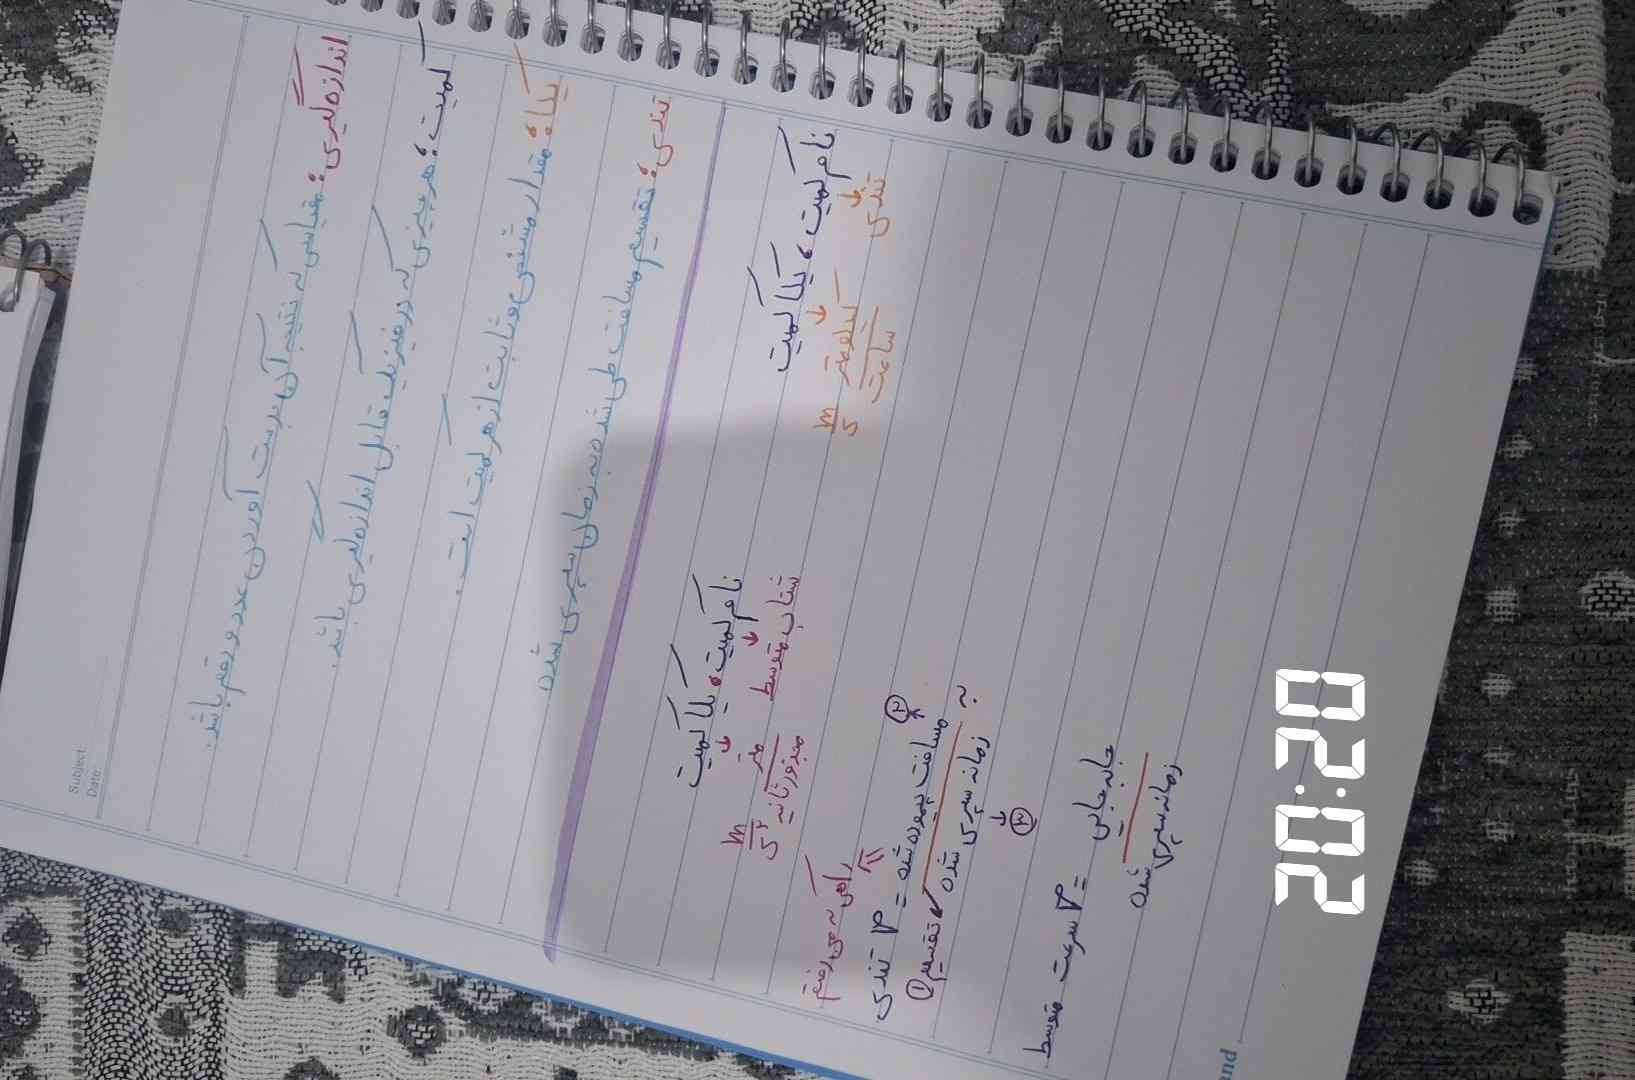 Subject:
Date:
اندازه‌گیری: مقیاسی که نتیجه آن بدست آوردن عدد و رقم باشد.
کمیت: هر چیزی که در فیزیک قابل اندازه‌گیری باشد.
یکا: مقدار مشخص و ثابت از هر کمیت است.
تندی: تقسیم مسافت طی شده به زمان سپری شده
نام کمیت، یکا کمیت
تندی
کیلومتر
ساعت
m
s
نام کمیت، یکا کمیت
شتاب متوسط
متر
مجذور ثانیه
m
s²
راهی که می رفتم
تندی v = مسافت پیموده شده
به
زمان سپری شده
① تقسیم
②
③
سرعت متوسط v = جابه جایی
زمان سپری شده
nd
20:20